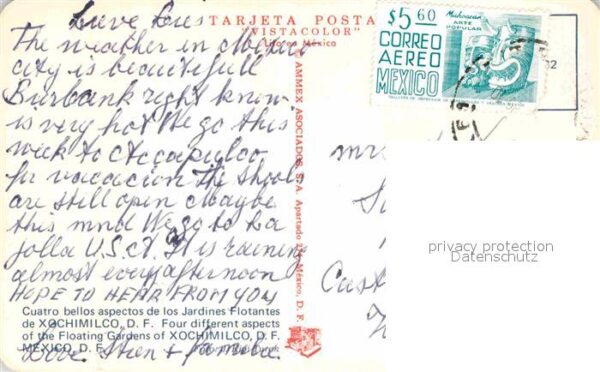 Lieve Dries
The weather in Mexico
city is beautifull
Burbank right know
is very hot We go this
week to Accapulco
for vacacion The Shools
are still open Maybe
this mnd We go to La
Jolla U.S.A. It is raining
almost every afternoon
HOPE TO HEAR FROM YOU
Love. + familie.
Cuatro bellos aspectos de los Jardines Flotantes
de XOCHIMILCO, D. F. Four different aspects
of the Floating Gardens of XOCHIMILCO, D. F.
MEXICO, D. F.
TARJETA POSTA
"VISTACOLOR"
México
AMMEX ASOCIADOS, S. A. Apartado México, D. F.
$5 60
Michoacán
ARTE
POPULAR
CORREO
AEREO
MEXICO
mr
Cast
privacy protection
Datenschutz